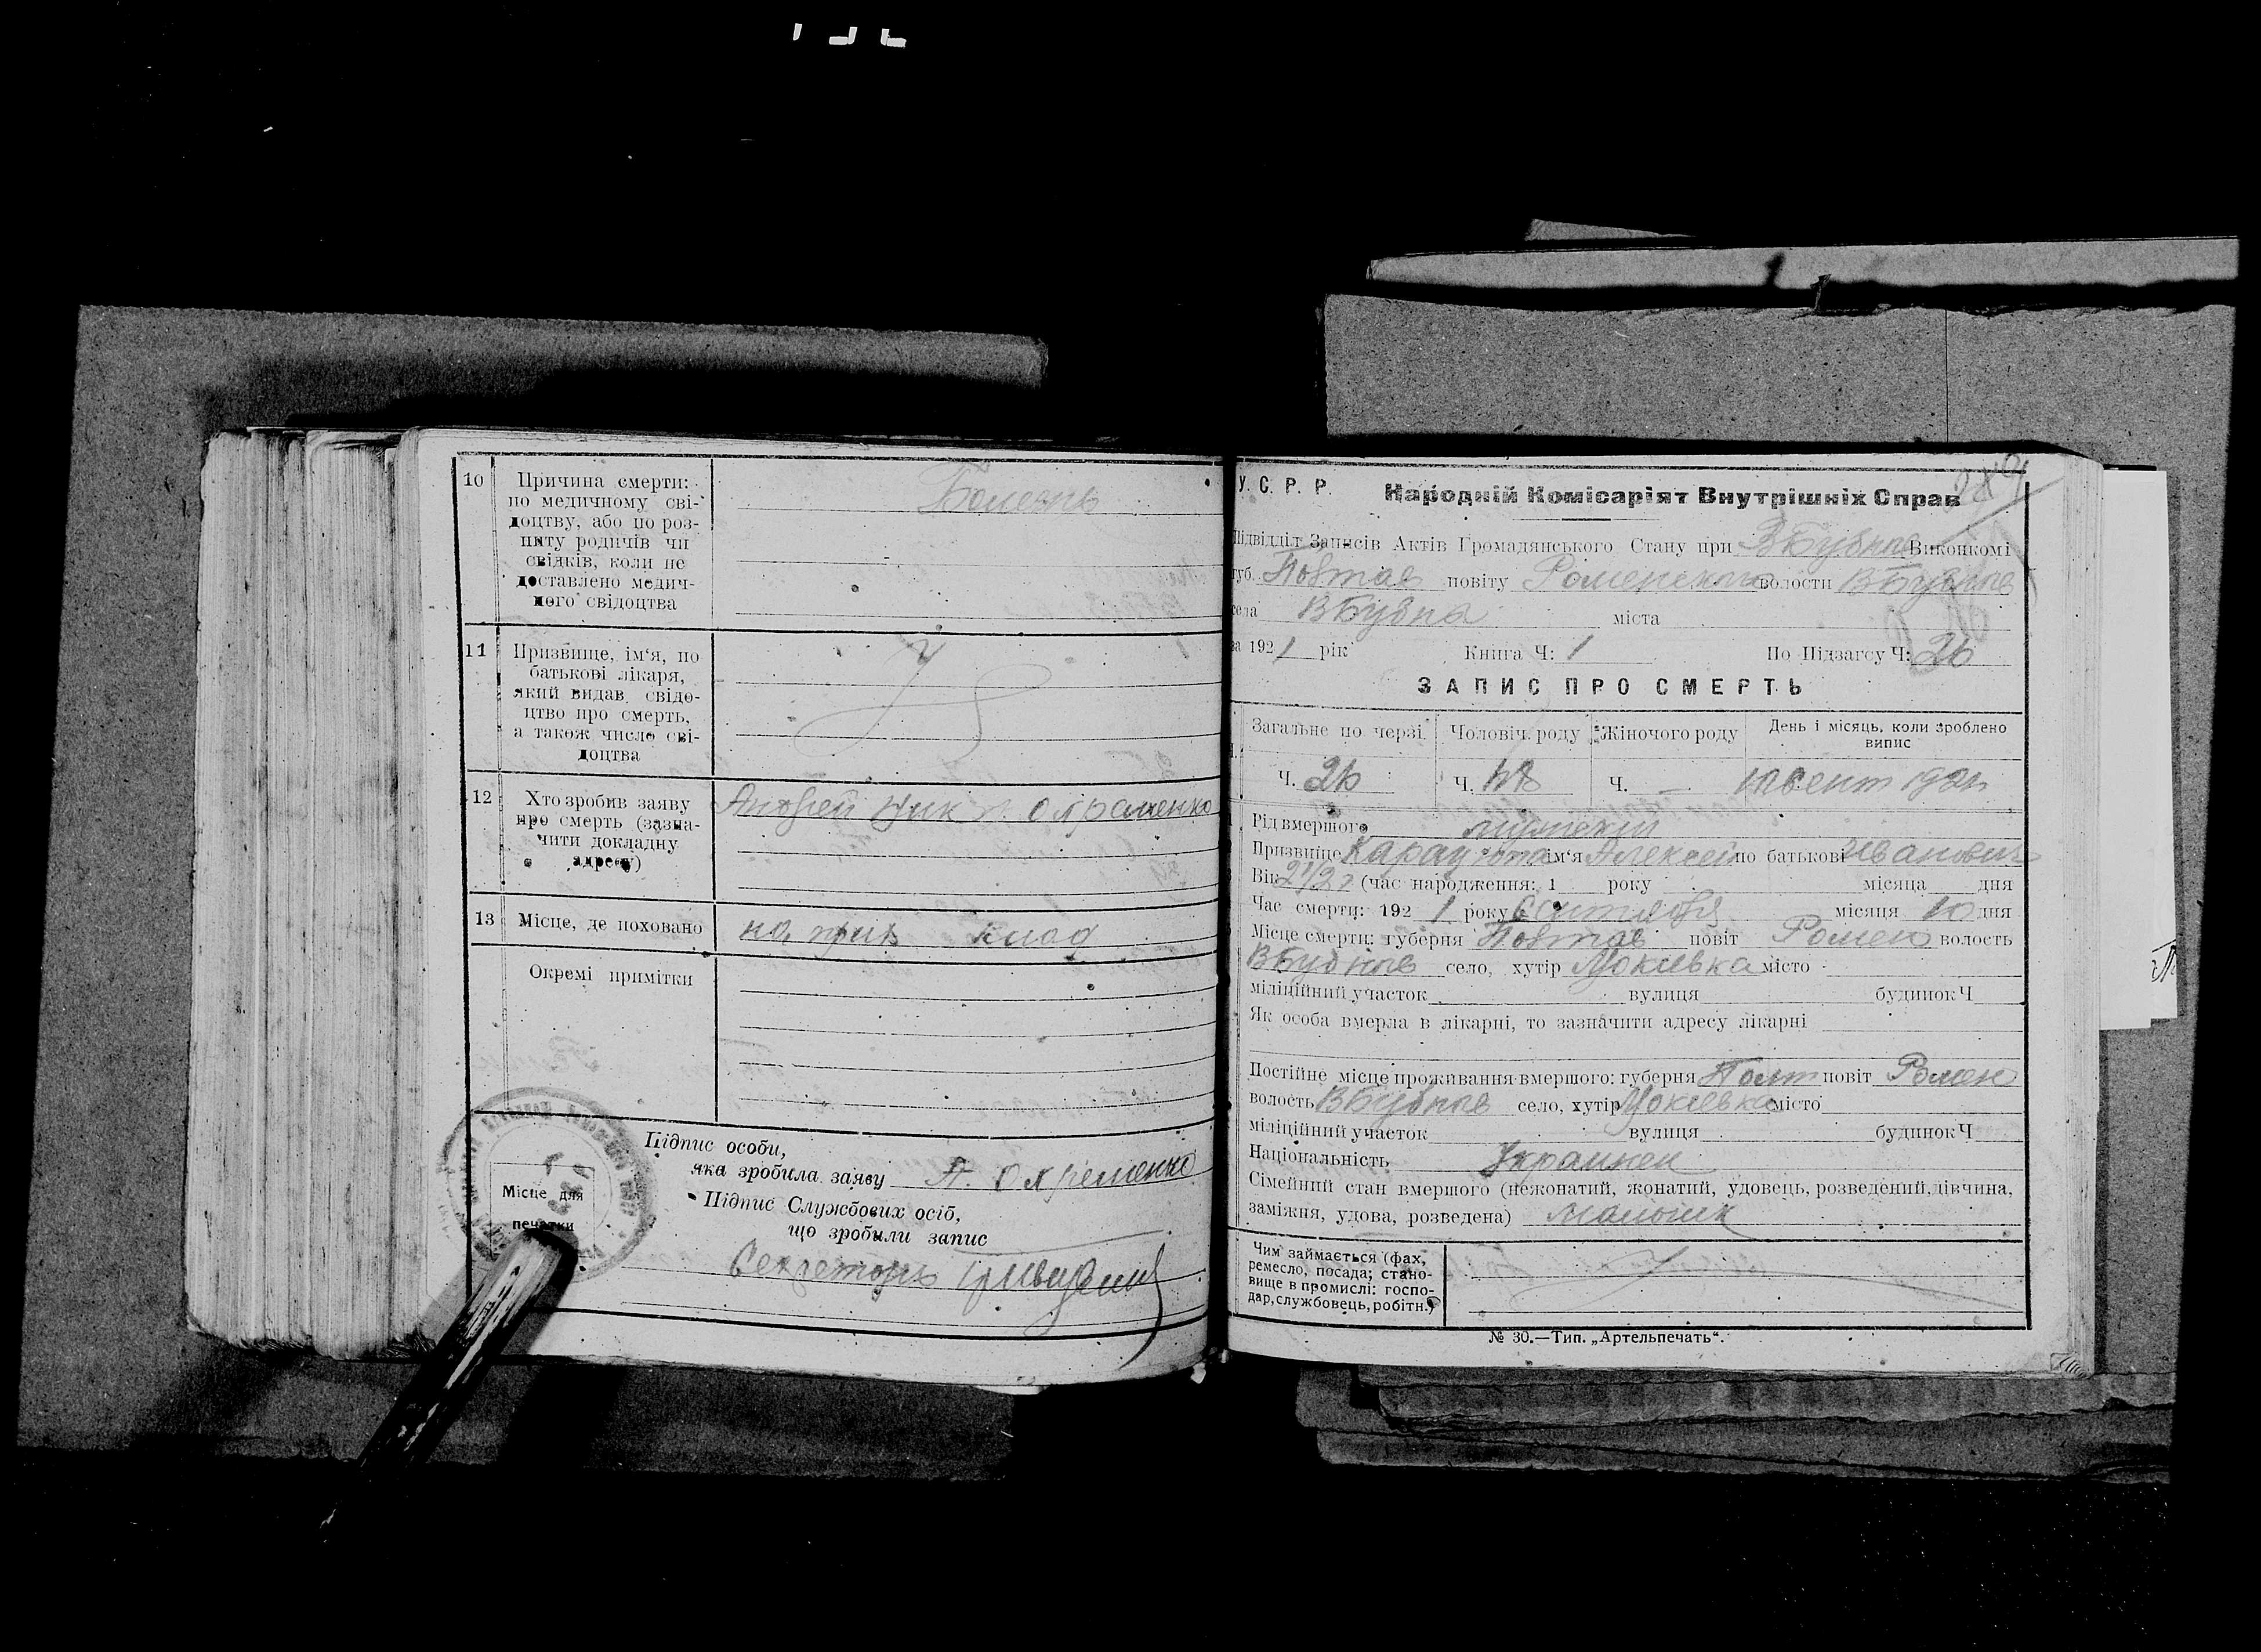 10 Причина смерти:
по медичному сві-
доцтву, або по роз-
питу родичів чи
свідків, коли не
доставлено медич-
ного свідоцтва
Болезнь
11 Призвище, ім'я, по
батькові лікаря,
який видав свідо-
цтво про смерть,
а також число сві-
доцтва
12 Хто зробив заяву
про смерть (зазна-
чити докладну
адресу)
Андрей Ник Охраменко
13 Місце, де поховано
на прих клад
Окремі примітки
Місце для
печатки
Підпис особи,
яка зробила заяву А. Охременко
Підпис Службових осіб,
що зробили запис
Секретарь
У. С. Р. Р. Народній Комісаріят Внутрішніх Справ
Підвідділ Записів Актів Громадянського Стану при ВБубнів Виконкомі
губ. Полтав повіту Роменського волости ВБубнов
села ВБубна міста
за 1921 рік Книга Ч: 1 По Підзагсу Ч: 26
ЗАПИС ПРО СМЕРТЬ
Загальне по черзі Чоловіч. роду Жіночого роду День і місяць, коли зроблено
випис
Ч. 26 Ч. Ч. — сент 1921
Рід вмершого мужский
Призвище ім'я Алексей по батькові Иванович
Вік 2 1/2 (час народження: 1 року місяца дня
Час смерти: 1921 року Сентября місяця 10 дня
Місце смерти: губерня Полтав повіт Ромен волость
ВБубнов село, хутір Мокіевка місто
міліційний участок вулиця будинок Ч
Як особа вмерла в лікарні, то зазначити адресу лікарні
Постійне місце проживання вмершого: губерня Полт повіт Ромен
волость ВБубнов село, хутір Мокіевка місто
міліційний участок вулиця будинок Ч
Національність Украинец
Сімейний стан вмершого (нежонатий, жонатий, удовець, розведений, дівчина,
заміжня, удова, розведена)
Чим займається (фах,
ремесло, посада; стано-
вище в промислі: госпо-
дар, службовець, робітн.)
№ 30.—Тип. „Артельпечать“.